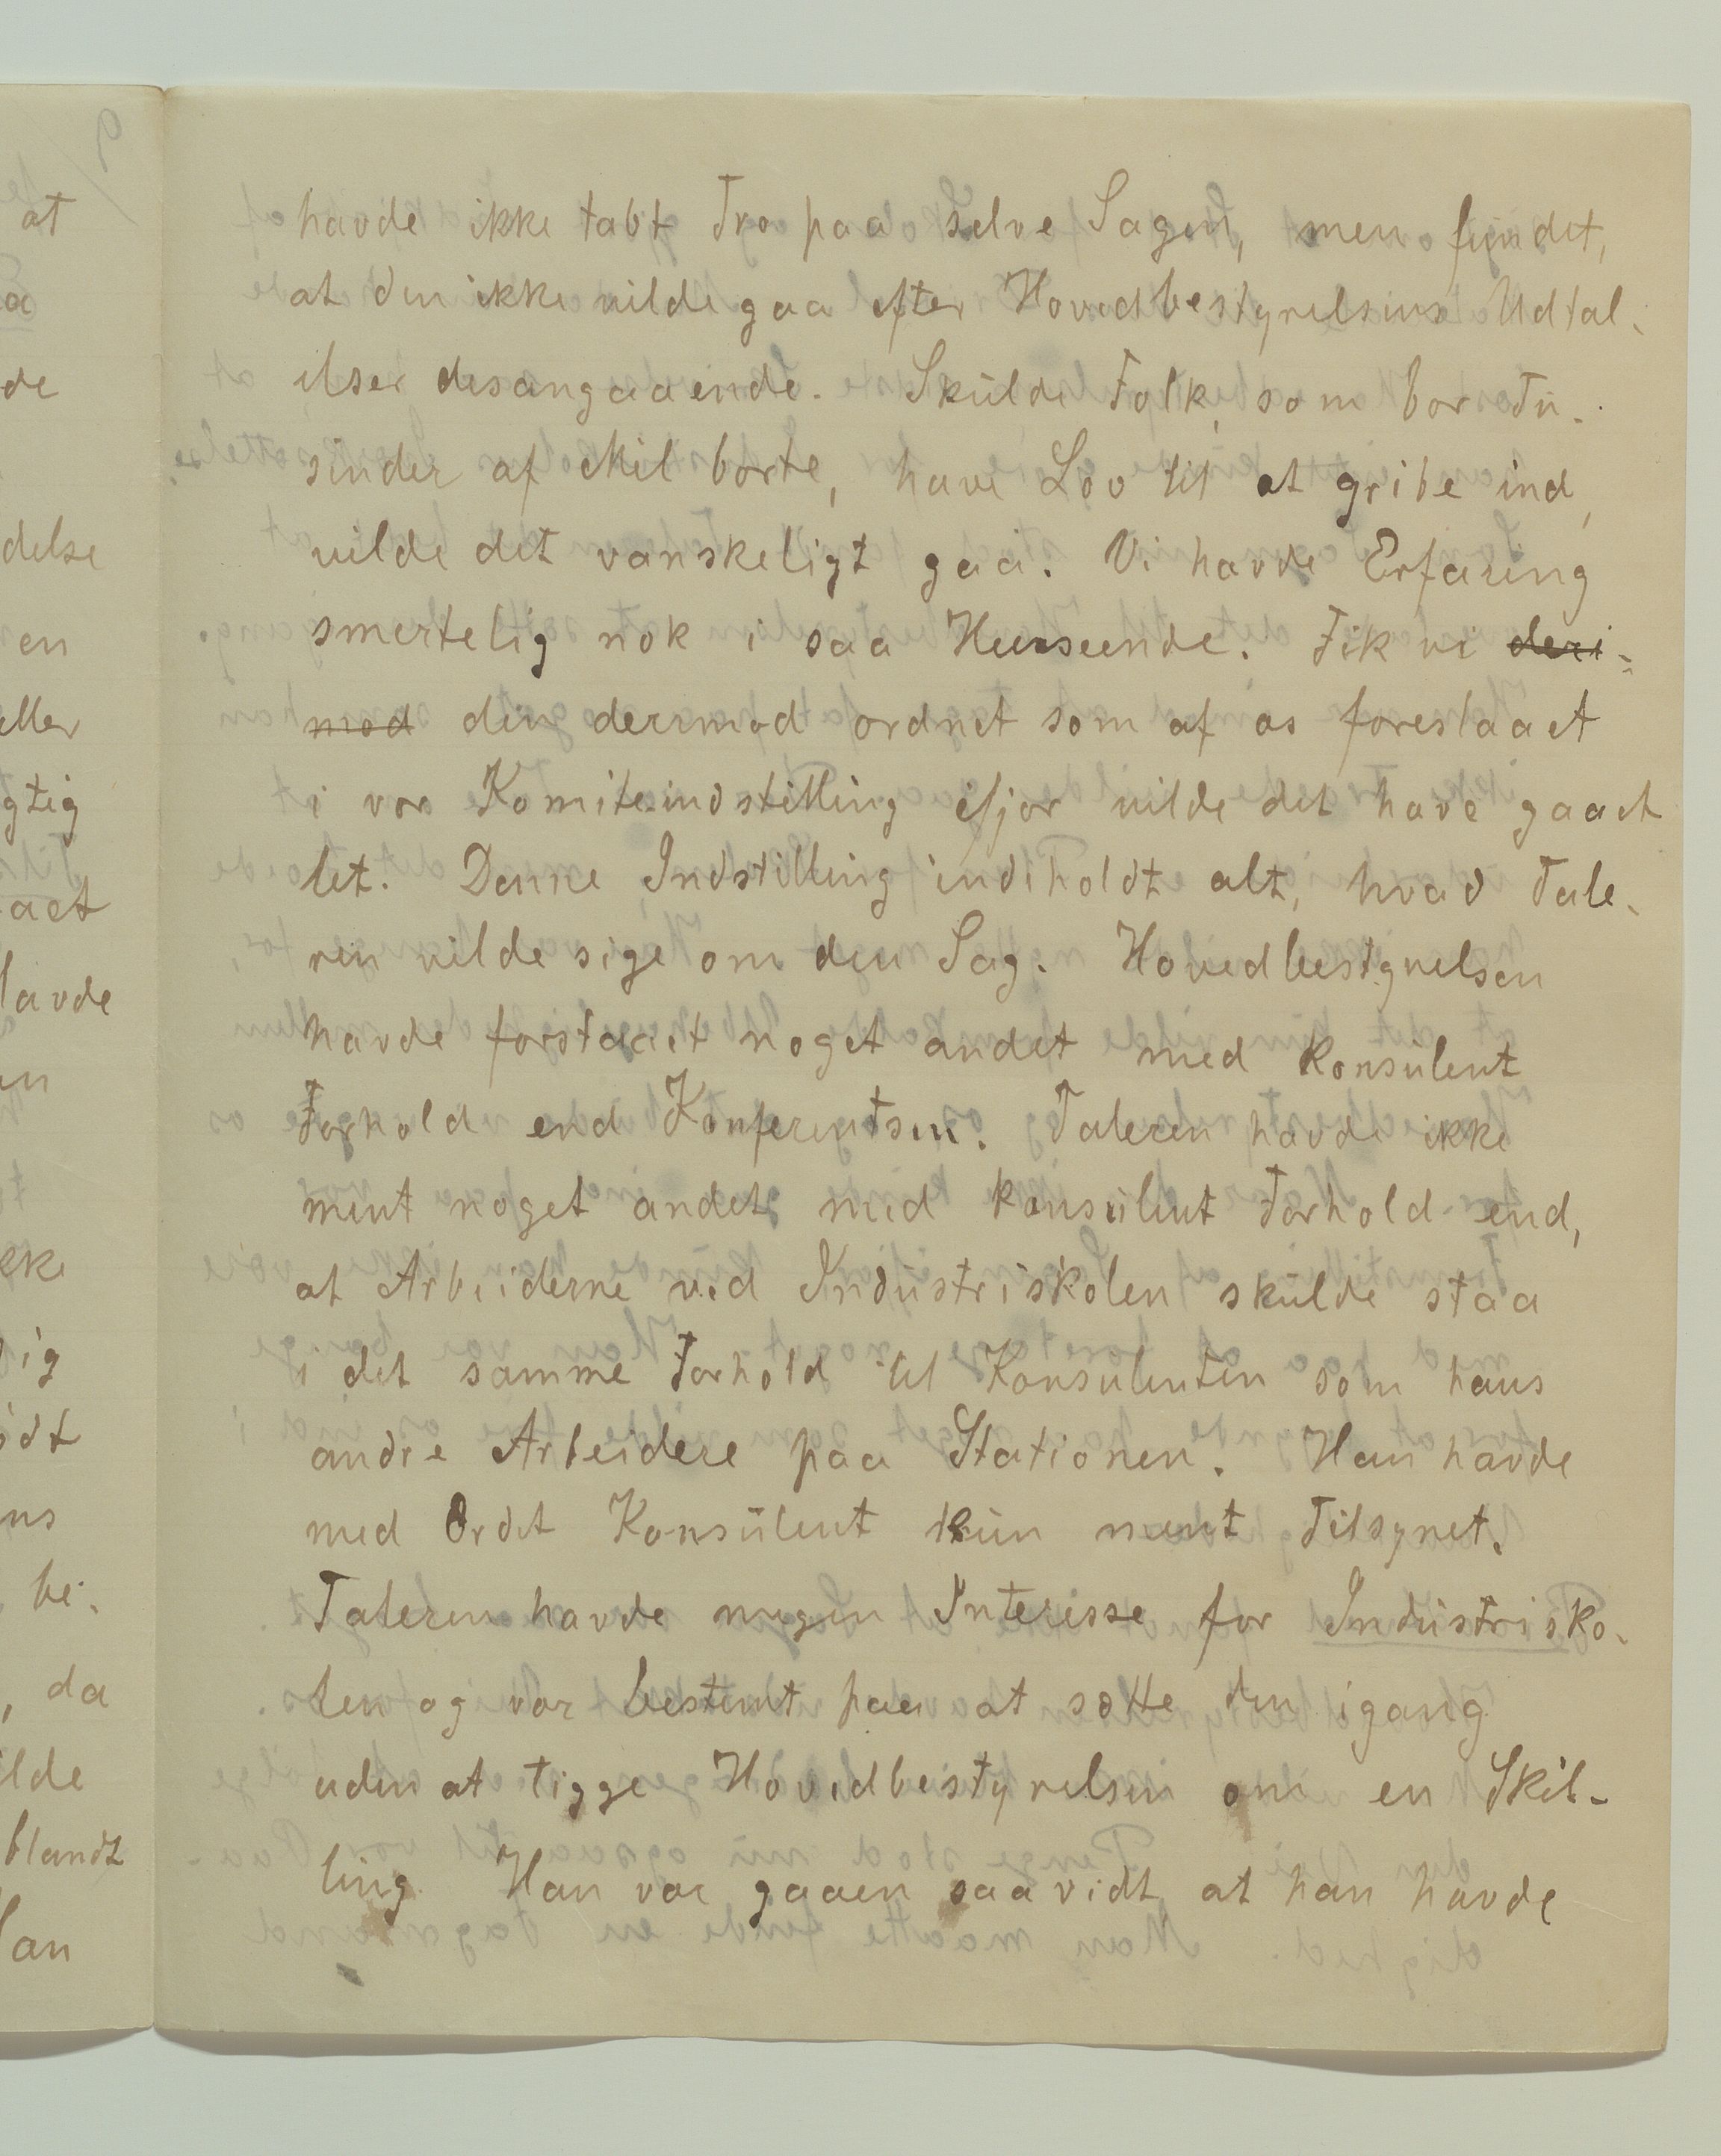 havde ikke tabt Tro paa selve Sagen, men fundet,
at den ikke vilde gaa efter Hovedbestyrelsens Udtal-
elser desangaaende. Skulde Folk, som bor Tu-
sinder af Mil borte, have Lov til at gribe ind,
vilde det vanskeligt gaa. Vi havde Erfaring
smertelig nok i saa Henseende. Fik vi deri-
mod den derimod ordnet som af os foreslaaet
i vor Komiteindstilling ifjor vilde det have gaaet
let. Denne Indstilling indeholdt alt, hvad Tale-
ren vilde sige om den Sag. Hovedbestyrelsen
havde forstaaet noget andet med Konsulent
Forhold end Konferentsen. Taleren havde ikke
ment noget andet med Konsulent Forhold end,
at Arbeiderne ved Industriskolen skulde staa
i det samme Forhold til Konsulenten som hans
andre Arbeidere paa Stationen. Han havde
med Ordet Konsulent kun ment Tilsynet.
Taleren havde megen Interesse for Industrisko-
len og var bestemt paa at sætte den igang
uden at tigge Hovedbestyrelsen om en Skil-
ling. Han var gaaen saa vidt at han havde
at
a
de
delse
en
eller
gtig
aet
havde
kke
ig
ødt
ns
be-
, da
ilde
blandt
Han